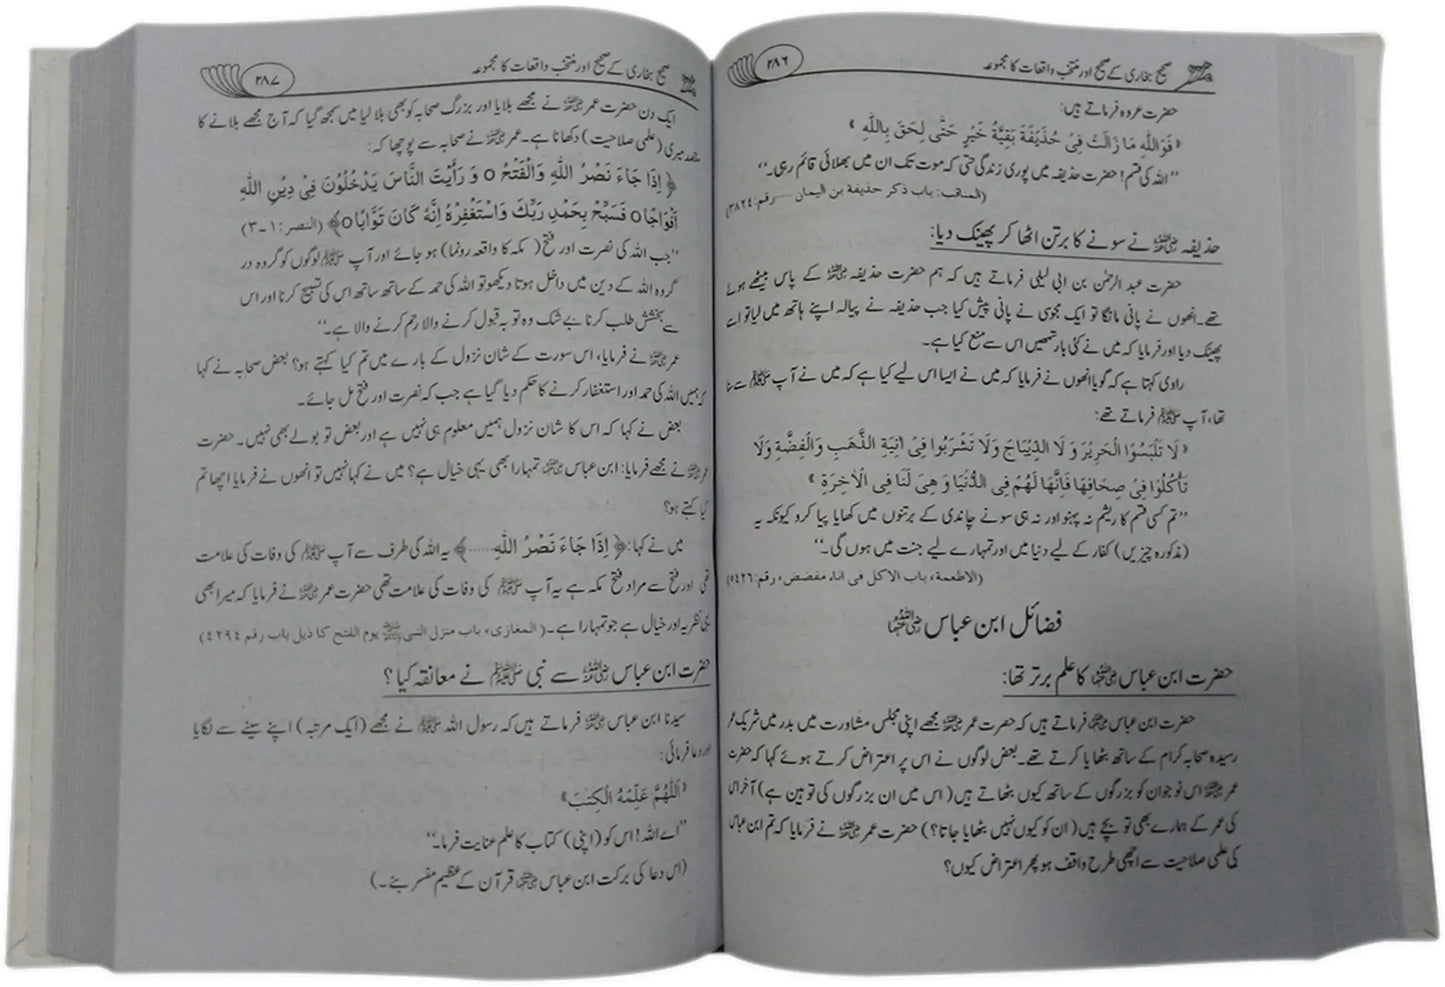 صحیح بخاری کے صحیح اور منتخب واقعات کا مجموعہ
۲۸۶
حضرت عروہ فرماتے ہیں:
﴿ فَوَاللّٰهِ مَا زَالَتْ فِیْ حُذَیْفَةَ بَقِیَّةُ خَیْرٍ حَتّٰی لَحِقَ بِاللّٰهِ ﴾
’’اللہ کی قسم! حضرت حذیفہ میں پوری زندگی حتی کہ موت تک ان میں بھلائی قائم رہی۔‘‘
(المناقب: باب ذکر حذیفة بن الیمان — رقم: ۳۸۲۴)
حذیفہ رضی اللہ عنہ نے سونے کا برتن اٹھا کر پھینک دیا:
حضرت عبد الرحمٰن بن ابی لیلی فرماتے ہیں کہ ہم حضرت حذیفہ رضی اللہ عنہ کے پاس بیٹھے ہوئے
تھے۔ انھوں نے پانی مانگا تو ایک مجوسی نے پانی پیش کیا جب حذیفہ نے پیالہ اپنے ہاتھ میں لیا تو اسے
پھینک دیا اور فرمایا کہ میں نے کئی بار تمھیں اس سے منع کیا ہے۔
راوی کہتا ہے کہ گویا انھوں نے فرمایا کہ میں نے ایسا اس لیے کیا ہے کہ میں نے آپ ﷺ سے سنا
تھا، آپ ﷺ فرماتے تھے:
﴿ لَا تَلْبَسُوا الْحَرِیْرَ وَ لَا الدِّیْبَاجَ وَلَا تَشْرَبُوا فِیْ اٰنِیَةِ الذَّهَبِ وَالْفِضَّةِ وَلَا
تَأْكُلُوْا فِیْ صِحَافِهَا فَاِنَّهَا لَهُمْ فِی الدُّنْیَا وَ هِیَ لَنَا فِی الْاٰخِرَةِ ﴾
’’تم کسی قسم کا ریشم نہ پہنو اور نہ ہی سونے چاندی کے برتنوں میں کھایا پیا کرو کیونکہ یہ
(مذکورہ چیزیں) کفار کے لیے دنیا میں اور تمہارے لیے جنت میں ہوں گی۔‘‘
(الاطعمة، باب الاکل فی اناء مفضض، رقم: ۵۴۲۶)
فضائل ابن عباس رضی اللہ عنہما
حضرت ابن عباس رضی اللہ عنہما کا علم برتر تھا:
حضرت ابن عباس رضی اللہ عنہما فرماتے ہیں کہ حضرت عمر رضی اللہ عنہ مجھے اپنی مجلس مشاورت میں بدر میں شریک عمر
رسیدہ صحابہ کرام کے ساتھ بٹھایا کرتے تھے۔ بعض لوگوں نے اس پر اعتراض کرتے ہوئے کہا کہ حضرت
عمر رضی اللہ عنہ اس نوجوان کو بزرگوں کے ساتھ کیوں بٹھاتے ہیں (اس میں ان بزرگوں کی توہین ہے) آخر اس
کی عمر کے ہمارے بھی تو بچے ہیں (ان کو کیوں نہیں بٹھایا جاتا؟) حضرت عمر رضی اللہ عنہ نے فرمایا کہ تم ابن عباس
کی علمی صلاحیت سے اچھی طرح واقف ہو پھر اعتراض کیوں؟
صحیح بخاری کے صحیح اور منتخب واقعات کا مجموعہ
۲۸۷
ایک دن حضرت عمر رضی اللہ عنہ نے مجھے بلایا اور بزرگ صحابہ کو بھی بلا لیا میں سمجھ گیا کہ آج مجھے بلانے کا
مقصد میری (علمی صلاحیت) دکھانا ہے۔ عمر رضی اللہ عنہ نے صحابہ سے پوچھا کہ:
﴿ اِذَا جَاءَ نَصْرُ اللّٰهِ وَالْفَتْحُ o وَ رَأَیْتَ النَّاسَ یَدْخُلُوْنَ فِیْ دِیْنِ اللّٰهِ
اَفْوَاجًا o فَسَبِّحْ بِحَمْدِ رَبِّكَ وَاسْتَغْفِرْهُ اِنَّهٗ كَانَ تَوَّابًا o﴾ (النصر: ۱-۳)
’’جب اللہ کی نصرت اور فتح ( مکہ کا واقعہ رونما) ہو جائے اور آپ ﷺ لوگوں کو گروہ در
گروہ اللہ کے دین میں داخل ہوتا دیکھو تو اللہ کی حمد کے ساتھ ساتھ اس کی تسبیح کرنا اور اس
سے بخشش طلب کرنا بے شک وہ توبہ قبول کرنے والا رحم کرنے والا ہے۔‘‘
عمر رضی اللہ عنہ نے فرمایا، اس سورت کے شان نزول کے بارے میں تم کیا کہتے ہو؟ بعض صحابہ نے کہا
کہ ہمیں اللہ کی حمد اور استغفار کرنے کا حکم دیا گیا ہے جب کہ نصرت اور فتح مل جائے۔
بعض نے کہا کہ اس کا شان نزول ہمیں معلوم ہی نہیں ہے اور بعض تو بولے بھی نہیں۔ حضرت
عمر رضی اللہ عنہ نے مجھے فرمایا: ابن عباس رضی اللہ عنہما تمہارا بھی یہی خیال ہے؟ میں نے کہا نہیں تو انھوں نے فرمایا اچھا تم
کیا کہتے ہو؟
میں نے کہا: ﴿ اِذَا جَاءَ نَصْرُ اللّٰهِ ......﴾ یہ اللہ کی طرف سے آپ ﷺ کی وفات کی علامت
تھی اور فتح سے مراد فتح مکہ ہے یہ آپ ﷺ کی وفات کی علامت تھی حضرت عمر رضی اللہ عنہ نے فرمایا کہ میرا بھی
یہی نظریہ اور خیال ہے جو تمہارا ہے۔ (المغازی، باب منزل النبی ﷺ یوم الفتح کا ذیل باب رقم ۴۲۹۴)
حضرت ابن عباس رضی اللہ عنہما سے نبی ﷺ نے معانقہ کیا؟
سیدنا ابن عباس رضی اللہ عنہما فرماتے ہیں کہ رسول اللہ ﷺ نے مجھے (ایک مرتبہ) اپنے سینے سے لگایا
اور دعا فرمائی:
﴿اَللّٰهُمَّ عَلِّمْهُ الْكِتٰبَ﴾
’’اے اللہ! اس کو (اپنی) کتاب کا علم عنایت فرما۔‘‘
(اس دعا کی برکت ابن عباس رضی اللہ عنہما قرآن کے عظیم مفسر بنے۔)